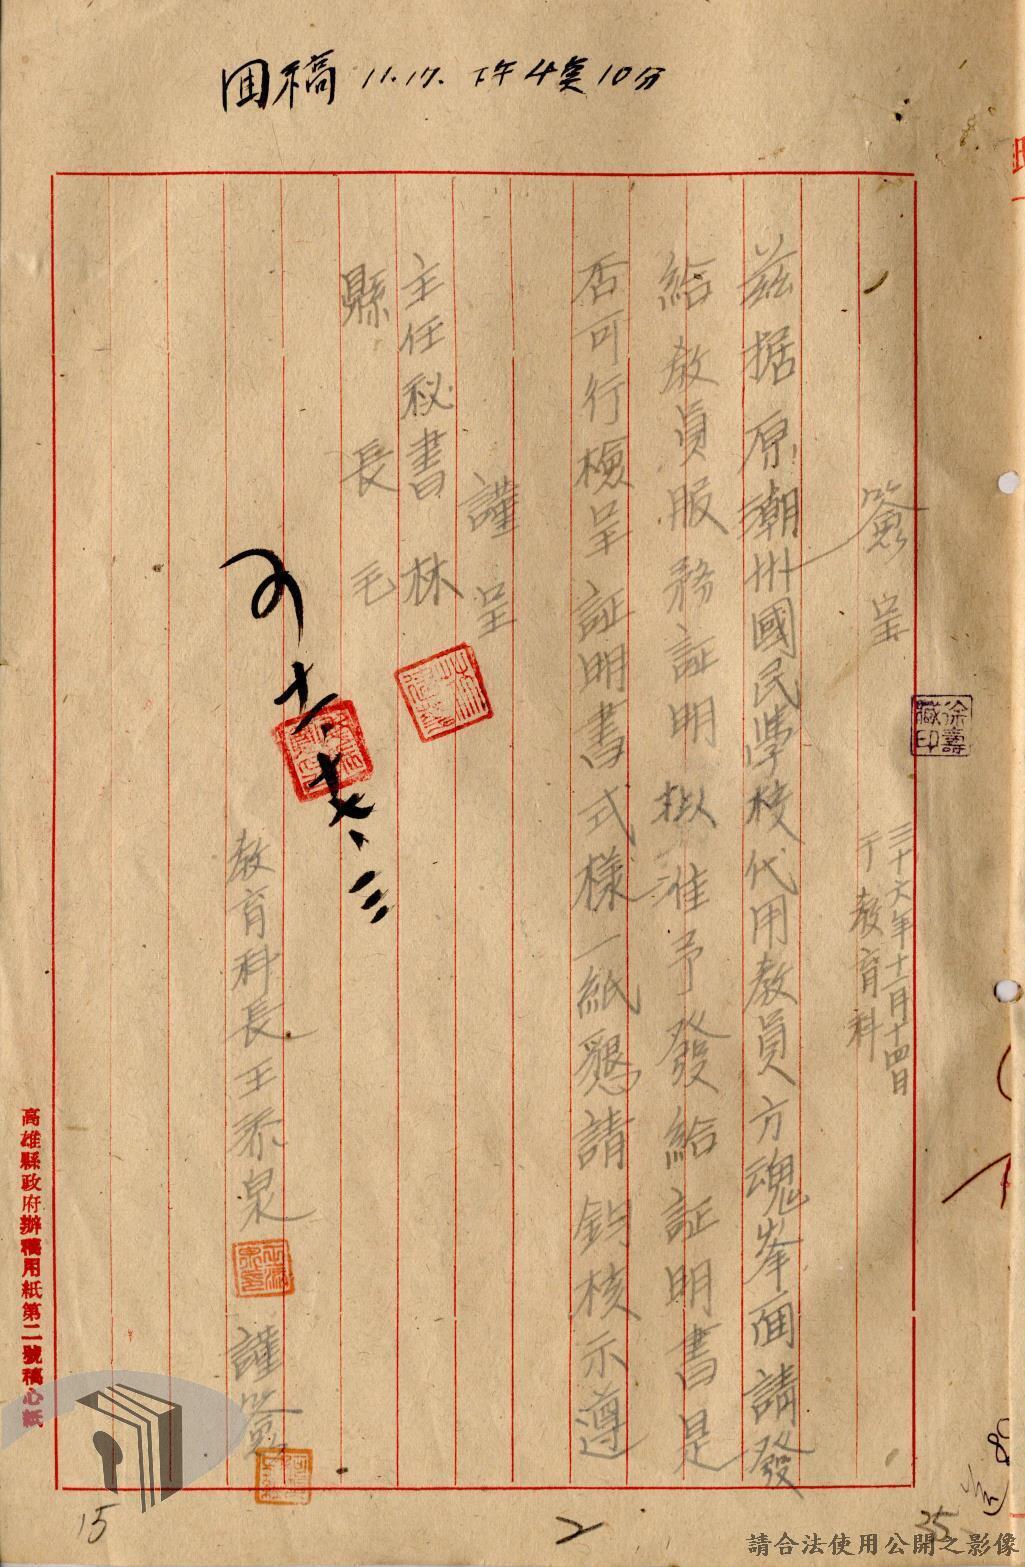 回稿 11.17. 下午4奌10分
簽呈
三十六年十一月十四日
于教育科
徐壽
藏印
茲据原潮州國民學校代用教員方魂峯面請發
給教員服務証明拟准予發給証明書是
否可行檢呈証明書式樣一紙懇請鈞核示遵
謹呈
主任秘書 林
縣長 毛
可
十一、十七、三
教育科長王添泉 謹簽
高雄縣政府辦稿用紙第二號稿心紙
15
2
35
請合法使用公開之影像